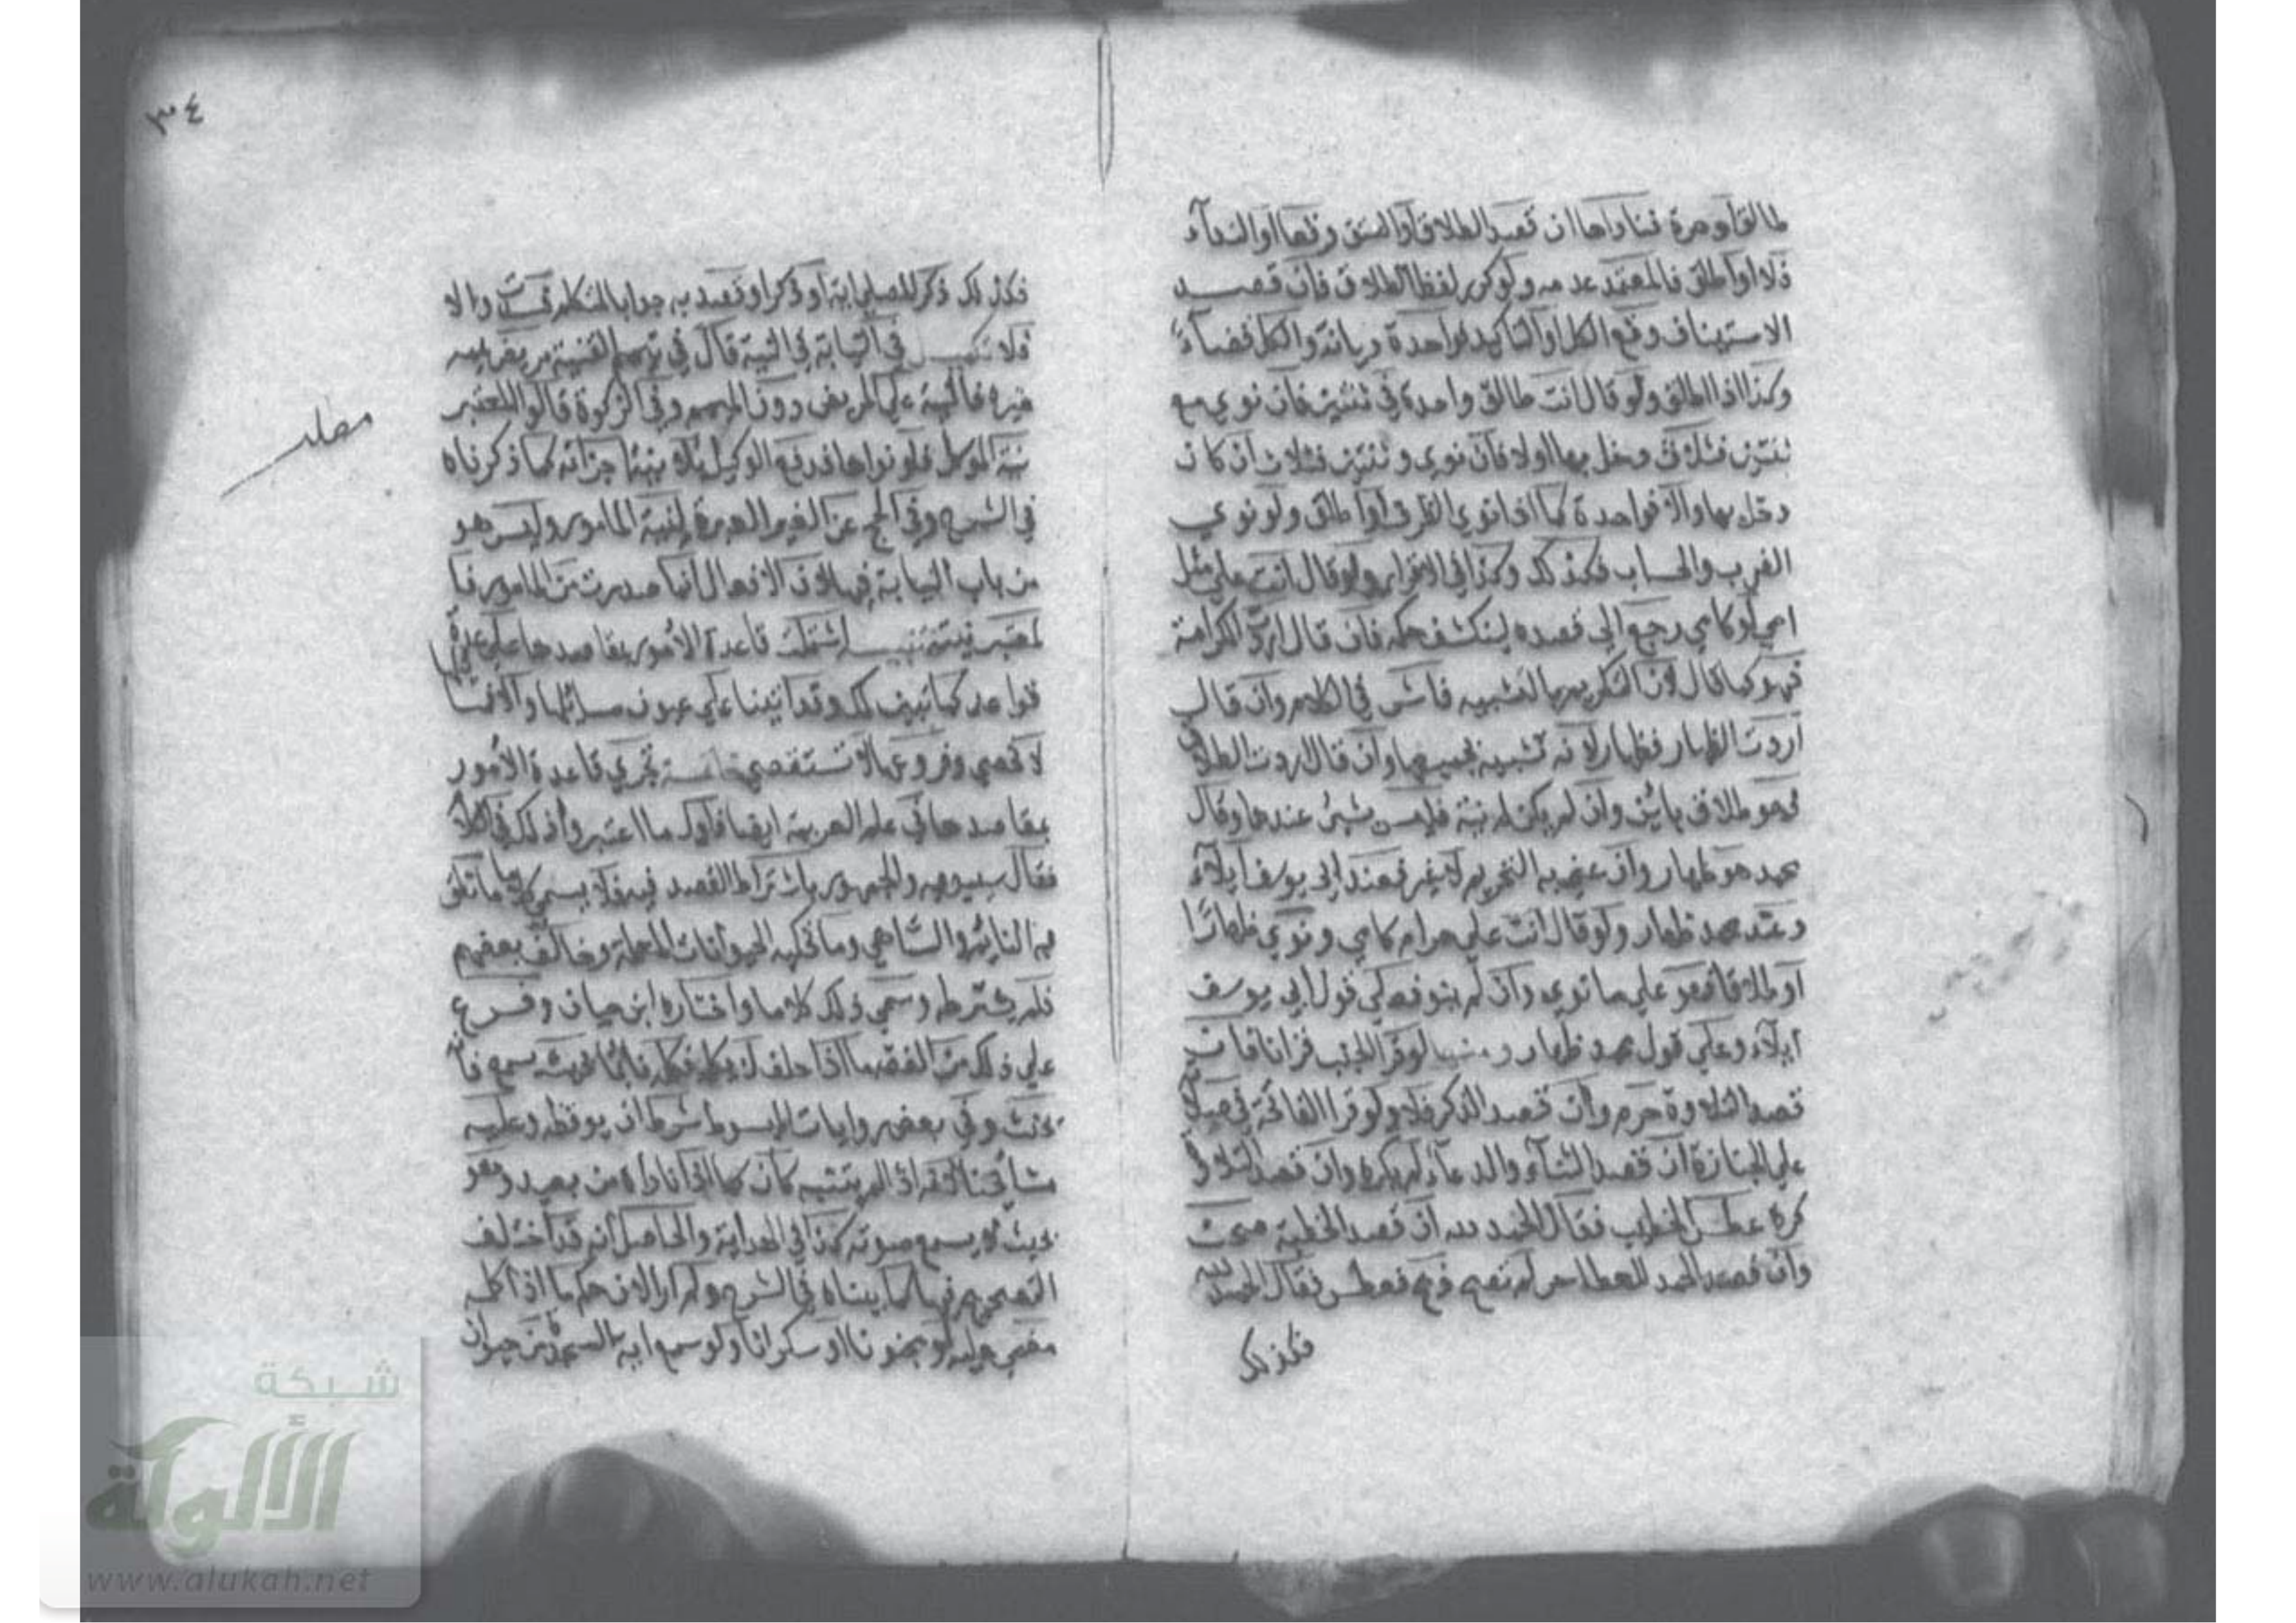 طالق او حرة فناداها ان قصد الطلاق او العتق وقعا او النداء
فلا او اطلق فالمعتمد عدمه ولو كرر لفظ الطلاق فان قصد
الاستيناف وقع الكل او التاكيد فواحدة ديانة والكل قضاء
وكذا اذا اطلق ولو قال انت طالق واحدة في ثنتين فان نوى مع
ثنتين فثلاث دخل بها او لا فان نوى وثنتين فثلاث ان كان
دخل بها والا فواحدة كما اذا نوى الظرف او اطلق ولو نوى
الضرب والحساب فكذلك وكذا في الاقرار ولو قال انت علي مثل
امي او كامي رجع الى قصده لينكشف حكمه فان قال اردت الكرامة
فهو كما قال لان التكريم بالتشبيه فاش في الكلام وان قال
اردت الظهار فظهار لانه تشبيه بجميعها وان قال اردت الطلاق
فهو طلاق باين وان لم يكن له نية فليس بشئ عندهما وقال
محمد هو ظهار وان عنى به التحريم لا غير فعند ابي يوسف ايلاء
وعند محمد ظهار ولو قال انت علي حرام كامي ونوى ظهارا
او طلاقا فهو على ما نوى وان لم ينو فعلى قول ابي يوسف
ايلاء وعلى قول محمد ظهار ومنها لو قرا الجنب قرانا فان
قصد التلاوة حرم وان قصد الذكر فلا ولو قرا الفاتحة في صلاته
على الجنازة ان قصد الثناء والدعاء لم يكره وان قصد التلاوة
كره عطس الخطيب فقال الحمد لله ان قصد الخطبة صحت
وان قصد الحمد للعطاس لم تصح ذبح فعطس فقال الحمد لله
فكذلك
فكذلك ذكر المصلي اية او ذكرا وقصد به جواب المتكلم فسدت والا
فلا تكميل في النيابة في النية قال في تيمم القنية مريض ييممه
غيره فالنية على المريض دون الميمم وفي الزكوة قالوا المعتبر
نية الموكل فلو نواها فدفع الوكيل بلا نية اجزاته كما ذكرناه
في الشرح وفي الحج عن الغير العبرة لنية المامور وليس هو
من باب النيابة فيها لان الافعال انما صدرت من المامور فا
لمعتبر نيته تنبيه اشتملت قاعدة الامور بمقاصدها على عدة
قواعد كما تبين لك وقد اتينا على عيون مسائلها والا فمسا
لا تحصى وفروعها لا تستقصى خاتمة تجري قاعدة الامور
بمقاصدها في علم العربية ايضا فاول ما اعتبروا ذلك في الكلام
فقال سيبويه والجمهور باشتراط القصد فيه فلا يسمى كلاما ما نطق
به النايم والساهي وما تحكيه الحيوانات المعلمة وخالف بعضهم
فلم يشترطه وسمى ذلك كلاما واختاره ابن حيان وفرع
على ذلك من الفقه ما اذا حلف لا يكلمه فكلمه نائما بحيث يسمع فانه
يحنث وفي بعض روايات المبسوط شرط ان يوقظه وعليه
مشايخنا لانه اذا لم يتنبه كان كما اذا ناداه من بعيد وهو
بحيث لا يسمع صوته كذا في الهداية والحاصل انه قد اختلف
التصحيح فيها كما بيناه في الشرح ولم ار الان حكم ما اذا كلمه
مغمى عليه او مجنونا او سكرانا ولو سمع اية السجدة من حيوان
مطلب
٣٤
شبكة
الألوكة
www.alukah.net